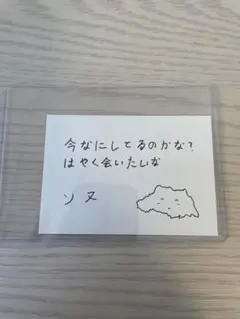 今なにしてるのかな?
はやく会いたいな
ソヌ